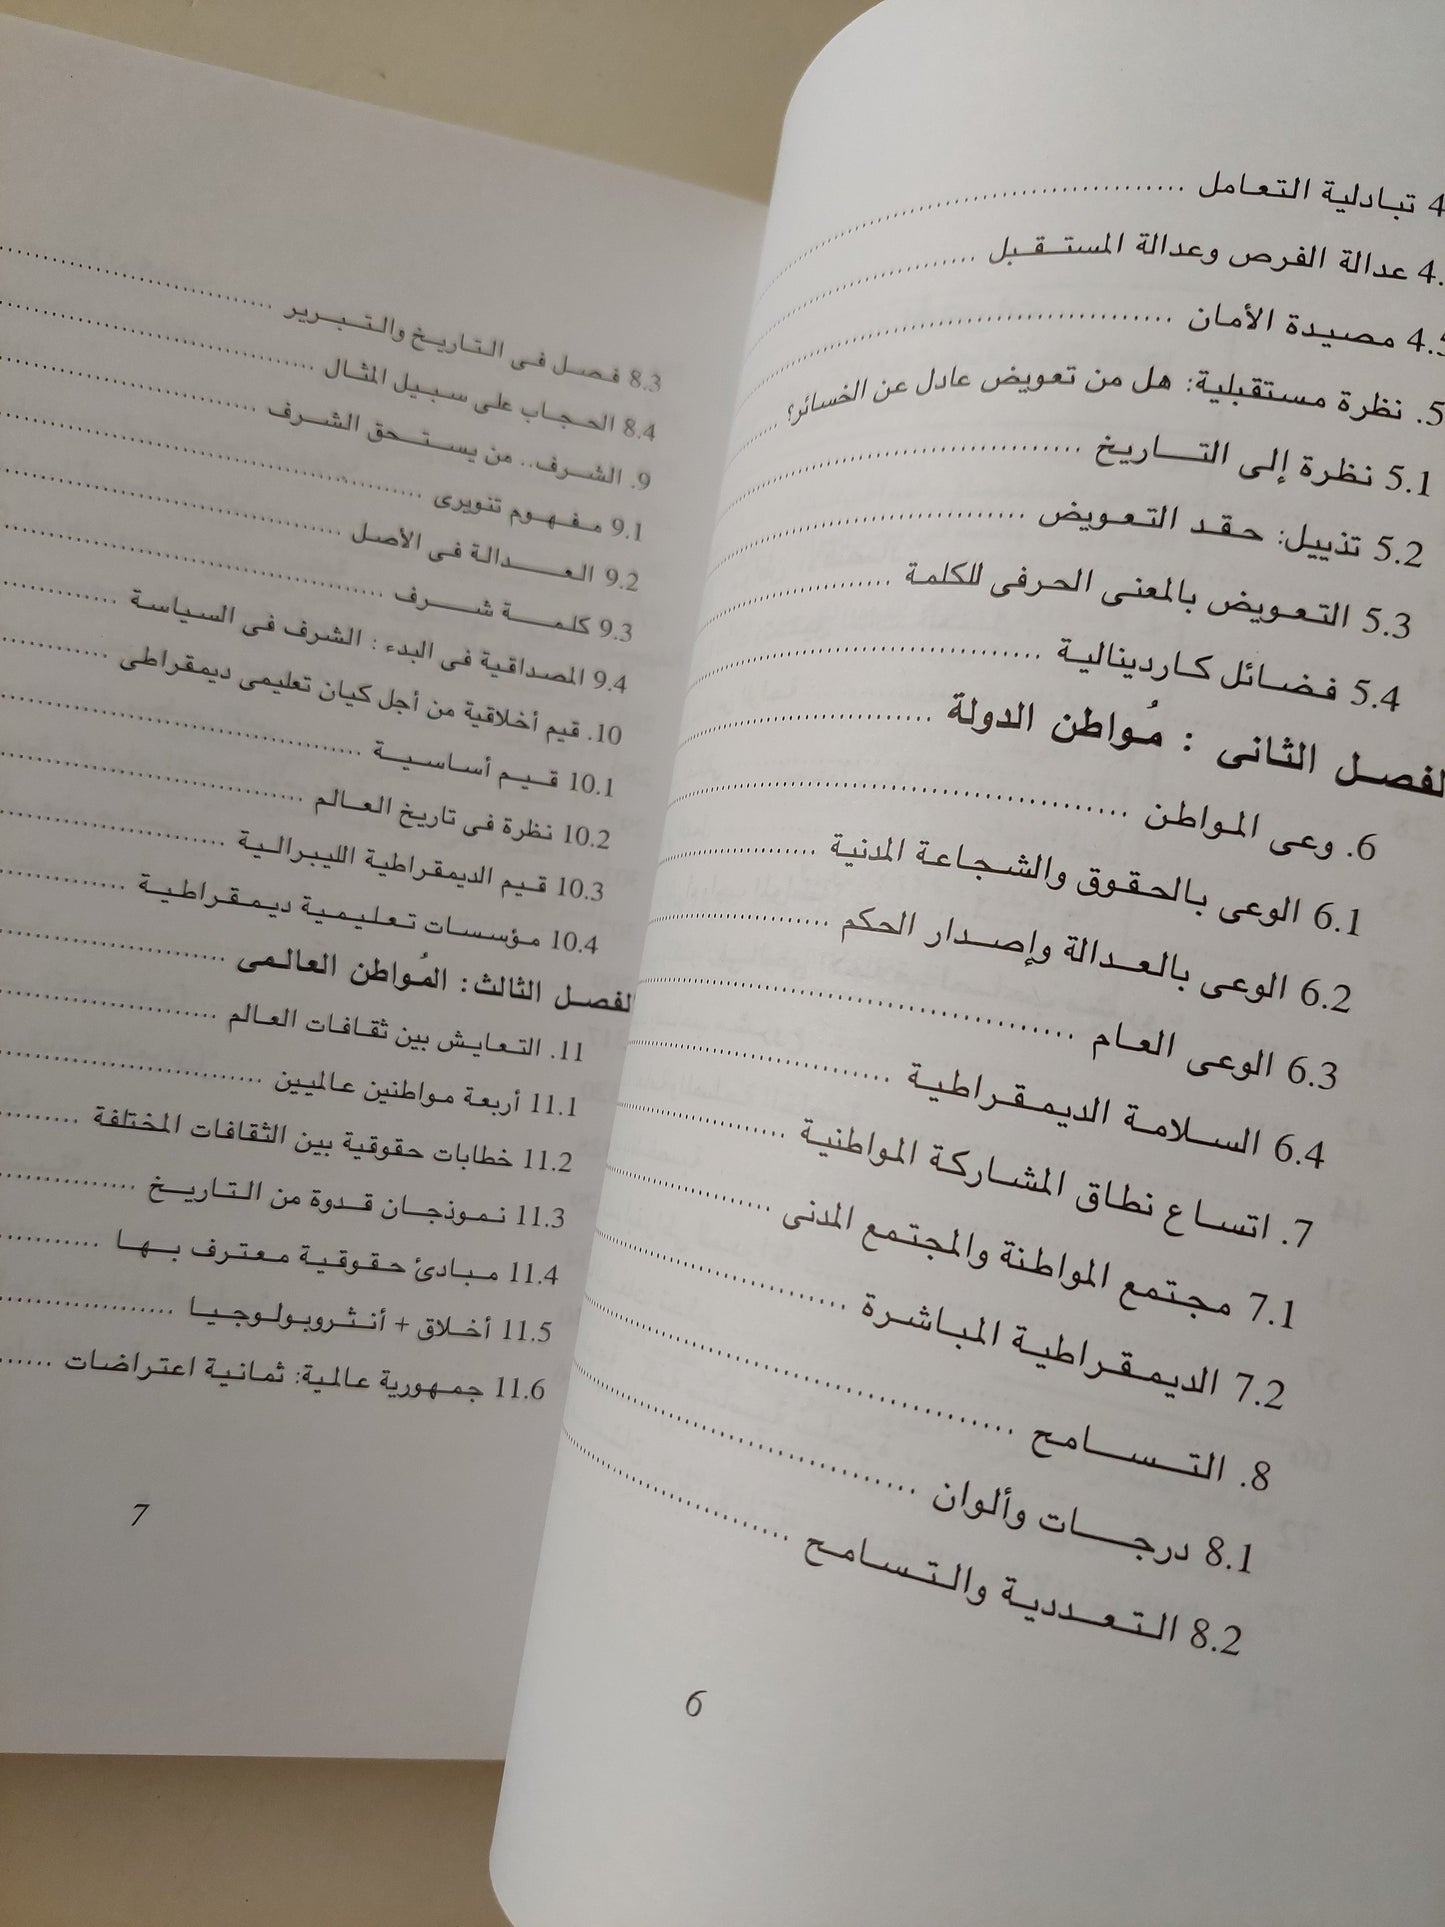 4 تبادلية التعامل
4. عدالة الفرص وعدالة المستقبل
4.5 مصيدة الأمان
5. نظرة مستقبلية: هل من تعويض عادل عن الخسائر؟
5.1 نظرة إلى التاريخ
5.2 تذييل: حقد التعويض
5.3 التعويض بالمعنى الحرفى للكلمة
5.4 فضائل كاردينالية
لفصل الثانى : مُواطن الدولة
6. وعى المواطن
6.1 الوعى بالحقوق والشجاعة المدنية
6.2 الوعى بالعدالة وإصدار الحكم
6.3 الوعى العام
6.4 السلامة الديمقراطية
7. اتساع نطاق المشاركة المواطنية
7.1 مجتمع المواطنة والمجتمع المدنى
7.2 الديمقراطية المباشرة
8. التسامح
8.1 درجات وألوان
8.2 التعددية والتسامح
6
8.3 فصل فى التاريخ والتبرير
8.4 الحجاب على سبيل المثال
9. الشرف.. من يستحق الشرف
9.1 مفهوم تنويرى
9.2 العدالة فى الأصل
9.3 كلمة شرف
9.4 المصداقية فى البدء : الشرف فى السياسة
10. قيم أخلاقية من أجل كيان تعليمى ديمقراطى
10.1 قيم أساسية
10.2 نظرة فى تاريخ العالم
10.3 قيم الديمقراطية الليبرالية
10.4 مؤسسات تعليمية ديمقراطية
لفصل الثالث: المُواطن العالمى
11. التعايش بين ثقافات العالم
11.1 أربعة مواطنين عالميين
11.2 خطابات حقوقية بين الثقافات المختلفة
11.3 نموذجان قدوة من التاريخ
11.4 مبادئ حقوقية معترف بها
11.5 أخلاق + أنثروبولوجيا
11.6 جمهورية عالمية: ثمانية اعتراضات
7